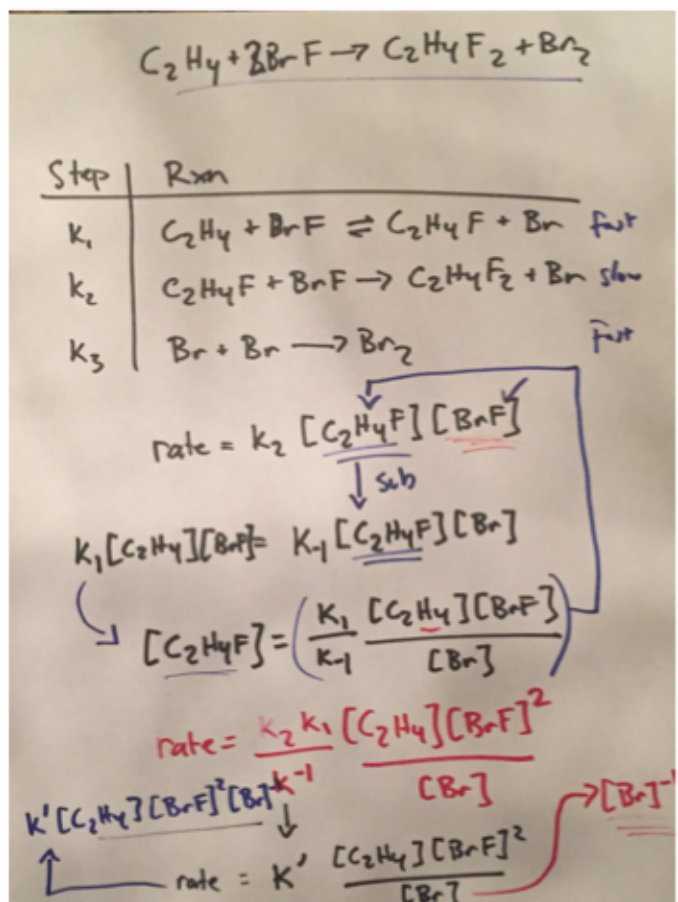 C₂H₄ + 2BrF → C₂H₄F₂ + Br₂
Step | Rxn
K₁ C₂H₄ + BrF ⇌ C₂H₄F + Br fast
K₂ C₂H₄F + BrF → C₂H₄F₂ + Br slow
K₃ Br + Br → Br₂ Fast
rate = K₂ [C₂H₄F] [BrF]
↓ sub
K₁[C₂H₄][BrF] = K₋₁ [C₂H₄F][Br]
[C₂H₄F] = (K₁/K₋₁ [C₂H₄][BrF]/[Br])
rate = K₂K₁/K⁻¹ [C₂H₄][BrF]²/[Br]
K'[C₂H₄][BrF]²[Br]⁻¹
→ [Br]⁻¹
rate = K' [C₂H₄][BrF]²/[Br]